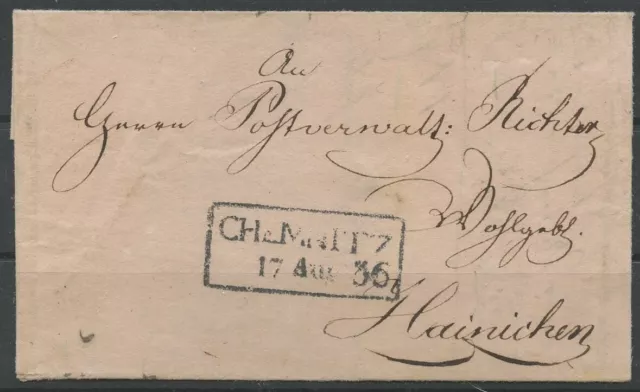 An
Herrn Postverwalt: Richter
Wohlgebl.
CHEMNITZ
17 Aug 36
Hainichen